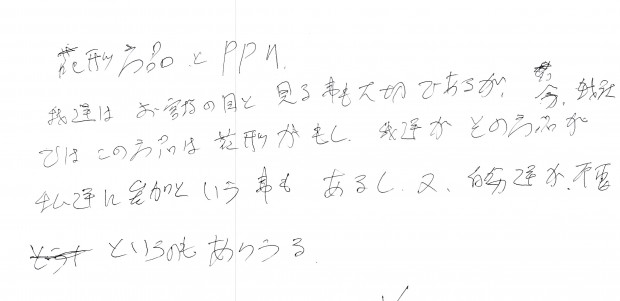 花形商品とPPM.
我達はお客様の目と見る事も大切であるが、今、我社
ではこの商品は花形かもし、我達がその商品が
私達に

という事もあるし、又、自分達が、不要
というのもありうる.